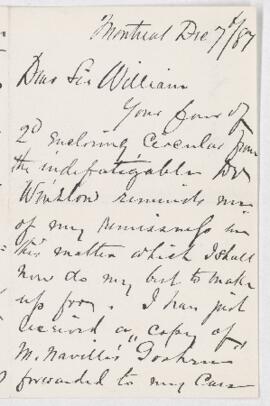 Montreal Dec 7th/87
Dear Sir William
Your favor of
2d enclosing circular from
the indefatigable Dr
Winslow reminds me
of my remissness in
this matter which I shall
now do my best to make
up for. I have just
received a "copy of
M. Naville's "Goshen"
forwarded to my care